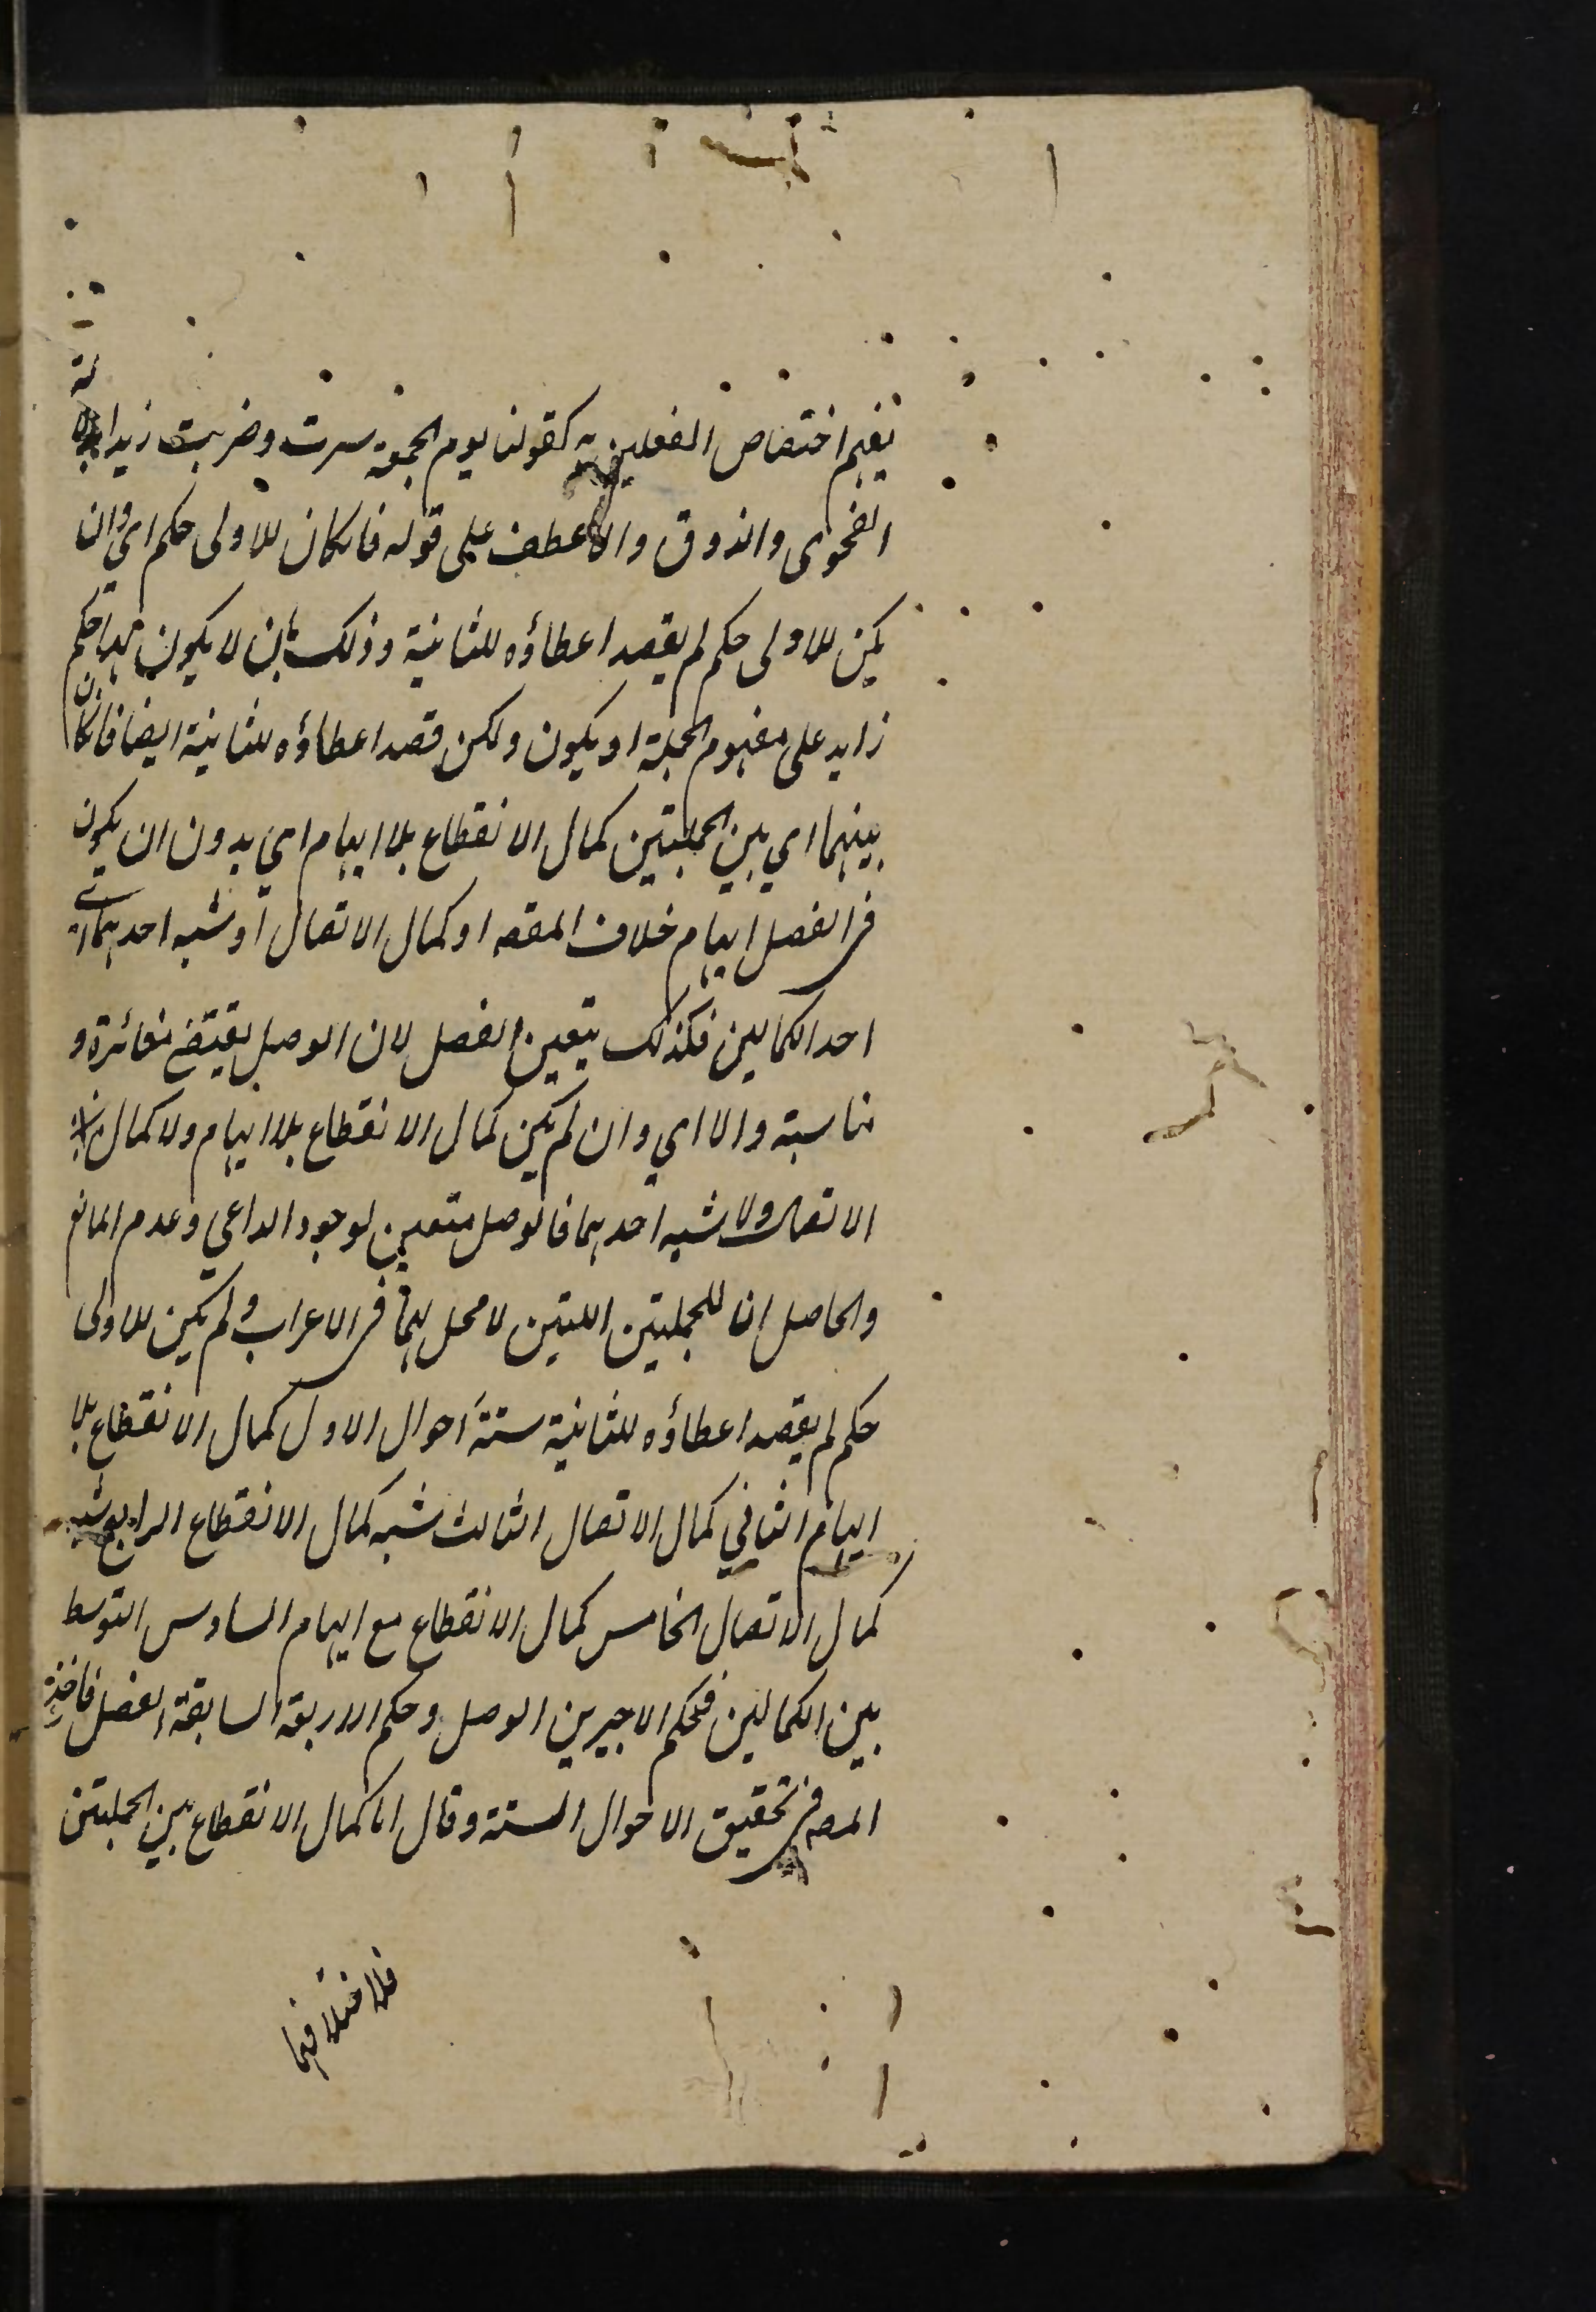 يفهم اختصاص الفعلين به كقولنا يوم الجمعة سرت وضربت زيدا بدلالة
الفحوى والذوق والا عطف على قوله فان كان للاولى حكم اي وان لم
يكن للاولى حكم لم يقصد اعطاؤه للثانية وذلك بان لا يكون لها حكم
زايد على مفهوم الجملة او يكون ولكن قصد اعطاؤه للثانية ايضا فان كان
بينهما اي بين الجملتين كمال الانقطاع بلا ايهام اي بدون ان يكون
في الفصل ايهام خلاف المقصه او كمال الاتصال او شبه احدهما اي
احد الكمالين فكذلك يتعين الفصل لان الوصل يقتضي مغائرة و
مناسبة والا اي وان لم يكن كمال الانقطاع بلا ايهام ولا كمال
الاتصال ولا شبه احدهما فالوصل متعين لوجود الداعي وعدم المانع
والحاصل ان للجملتين اللتين لا محل لهما في الاعراب ولم يكن للاولى
حكم لم يقصد اعطاؤه للثانية ستة احوال الاول كمال الانقطاع بلا
ايهام الثاني كمال الاتصال الثالث شبه كمال الانقطاع الرابع شبه
كمال الاتصال الخامس كمال الانقطاع مع ايهام السادس التوسط
بين الكمالين فحكم الاخيرين الوصل وحكم الاربعة السابقة الفصل فاخذ
المصه في تحقيق الاحوال الستة وقال اما كمال الانقطاع بين الجملتين
فلاختلافهما